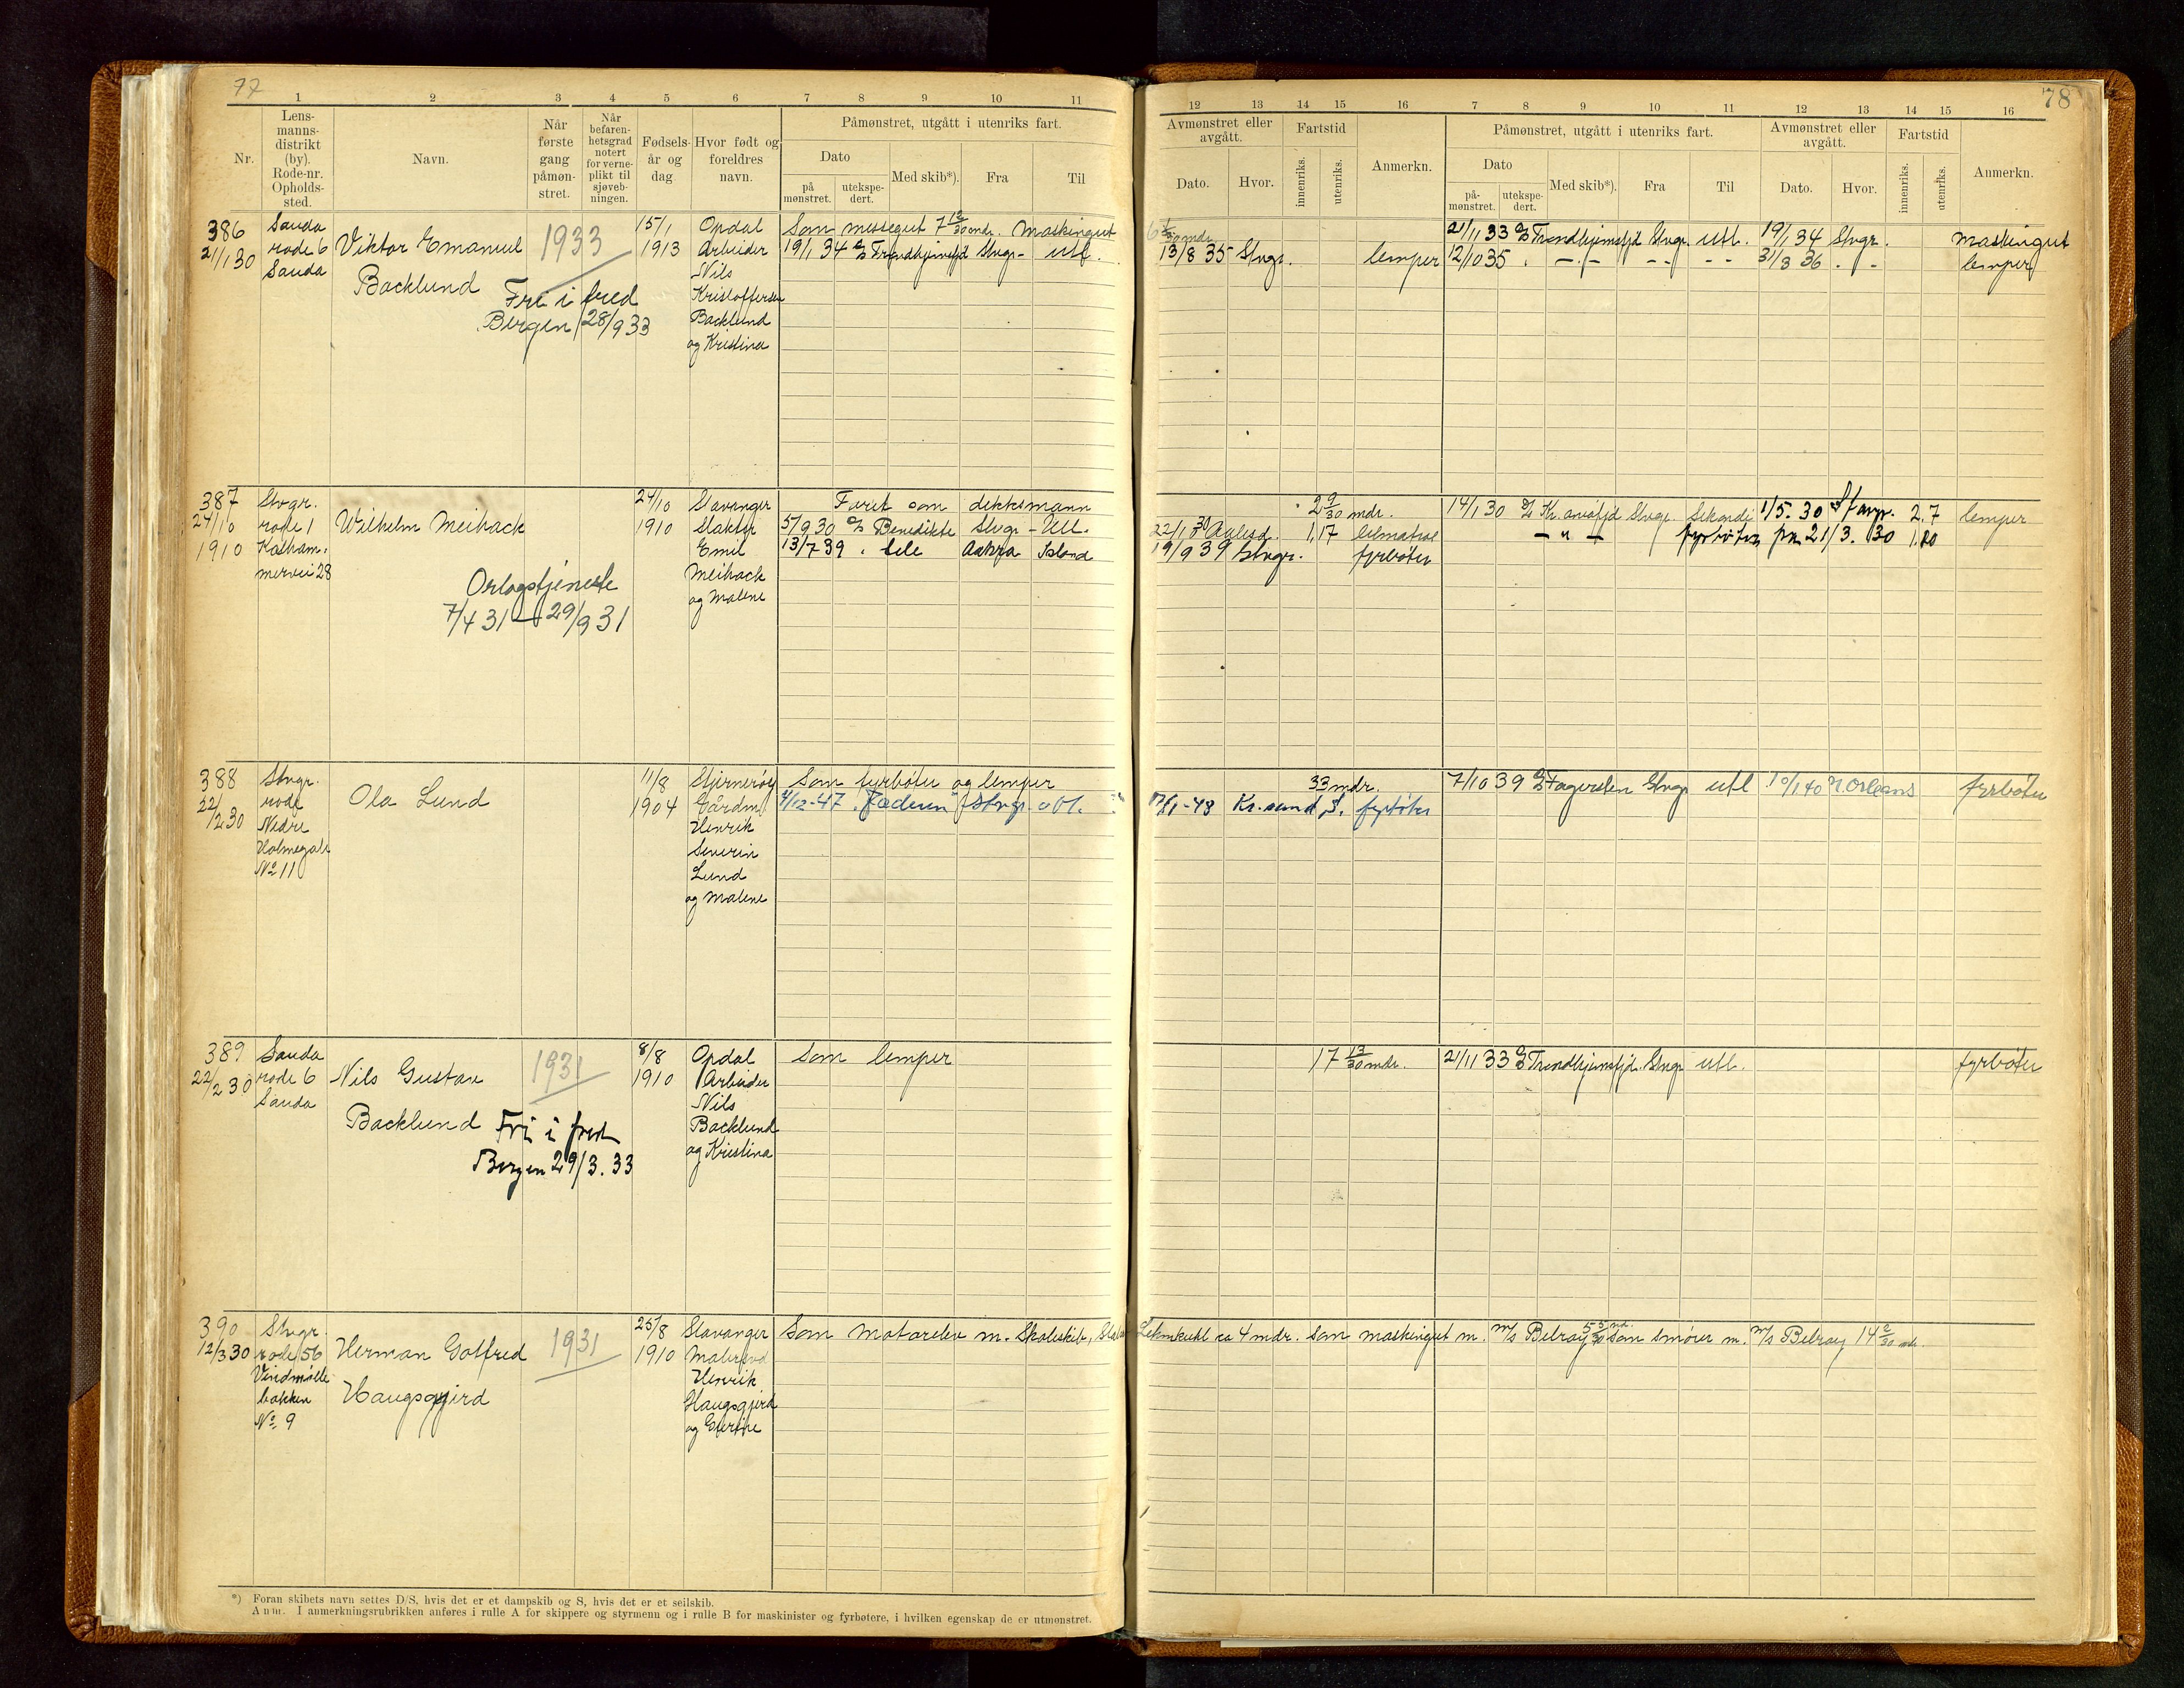 77
1 2 3 4 5 6 7 8 9 10 11
Nr.
Lens-
manns-
distrikt
(by).
Rode-nr.
Opholds-
sted.
Navn.
Når
første
gang
påmøn-
stret.
Når
befaren-
hetsgrad
notert
for verne-
plikt til
sjøveb-
ningen.
Fødsels-
år og
dag
Hvor født og
foreldres
navn.
Påmønstret, utgått i utenriks fart.
Dato
på
mønstret.
utekspe-
dert.
Med skib*).
Fra
Til
386 Sauda
21/1 30 rode 6
Sauda
Viktor Emanuel
Backlund
1933
Fri i fred
Bergen 28/9 33
15/1
1913
Opdal
Arbeider
Nils
Kristoffersen
Backlund
og Kristina
Som messegut 7 12/30 mdr. Maskingut
19/1 34 D/S Trondhjemsfjd Stvgr - utl.
387 Stvgr.
24/10 rode 1
1910
mervei 28
Wilhelm Meiback
Orlogstjeneste
7/4 31 - 29/9 31
24/10
1910
Stavanger
Slakter
Emil
Meiback
og Malene
Faret som dekksmann
5/9 30 D/S Benedikte Stvgr - Utl.
13/7 39 Aakra Island
388 Stvgr.
22/2 30 rode
Nedre
Holmegate
No 11
Ola Lund
11/8
1904
Gårdm.
Henrik
Severin
Lund
og Malene
Som fyrbøter og lemper
4/12-47 Stvgr. utl.
389 Sauda
22/2 30 rode 6
Sauda
Nils Gustav
Backlund
1931
Fri i fred
Bergen 29/3. 33
8/8
1910
Opdal
Arbeider
Nils
Backlund
og Kristina
Som lemper
390 Stvgr.
12/3 30 rode 56
Vindmølle-
bakken
No. 9
Herman Gotfred
Haugsgjerd
1931
25/8
1910
Stavanger
Henrik
Haugsgjerd
og
Som motorelev m. Skoleskib,
*) Foran skibets navn settes D/S, hvis det er et dampskib og S, hvis det er et seilskib.
Anm. I anmerkningsrubrikken anføres i rulle A for skippere og styrmenn og i rulle B for maskinister og fyrbøtere, i hvilken egenskap de er utmønstret.
78
12 13 14 15 16 7 8 9 10 11 12 13 14 15 16
Avmønstret eller
avgått.
Dato.
Hvor.
Fartstid
innenriks.
utenriks.
Anmerkn.
Påmønstret, utgått i utenriks fart.
Dato
på-
mønstret.
utekspe-
dert.
Med skib*).
Fra
Til
Avmønstret eller
avgått.
Dato.
Hvor.
Fartstid
innenriks.
utenriks.
Anmerkn.
21/11 33 D/S Trondhjemsfjd Stvgr. utl. 19/1 34 Stvgr. maskingut
13/8 35 Stvgr. lemper 12/10 35 31/3 36 lemper
2 9/30 mdr. 14/1 30 D/S Stvgr. 1/5-30 Stavgr. 2.7 lemper
22/1 30 1,17 fyrbøter på 21/3. 30 1.20
19/9 39 Stvgr. fyrbøter
33 mdr. 7/10 39 D/S Stvgr utl 10/1 40 N. Orleans fyrbøter
-48 Kr.sund S. fyrbøter
17 13/30 mdr. 21/11 33 D/S Trondhjemsfjd. Stvgr utl. fyrbøter
Lehmkuhl ca 4 mdr. som maskingut m. M/S Belray som smører m. M/S Belray 14 2/30 mdr.